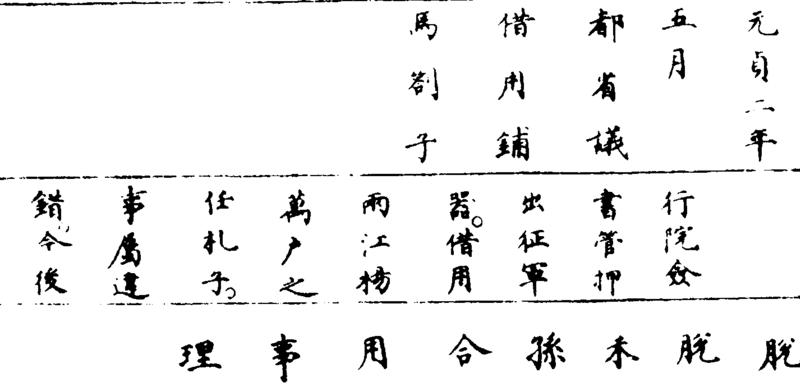 元貞二年
五月
都省議
借用鋪
馬劄子
行院僉
書管押
出征軍
器。借用
兩江楊
萬户之
任札子。
事屬違
錯。今後
脫脫禾孫合用事理